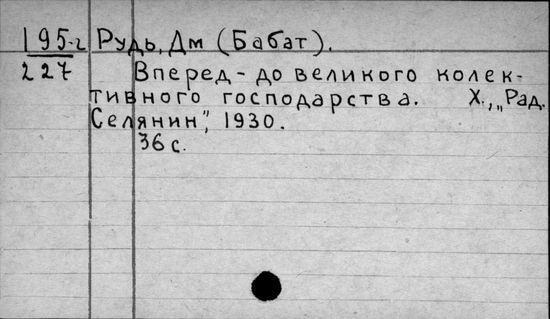 195-г Рудь, Дм (Бабат).
227 Вперед - до великого колек-
тивного господарства. Х., „Рад.
Селянин", 1930.
36 с.